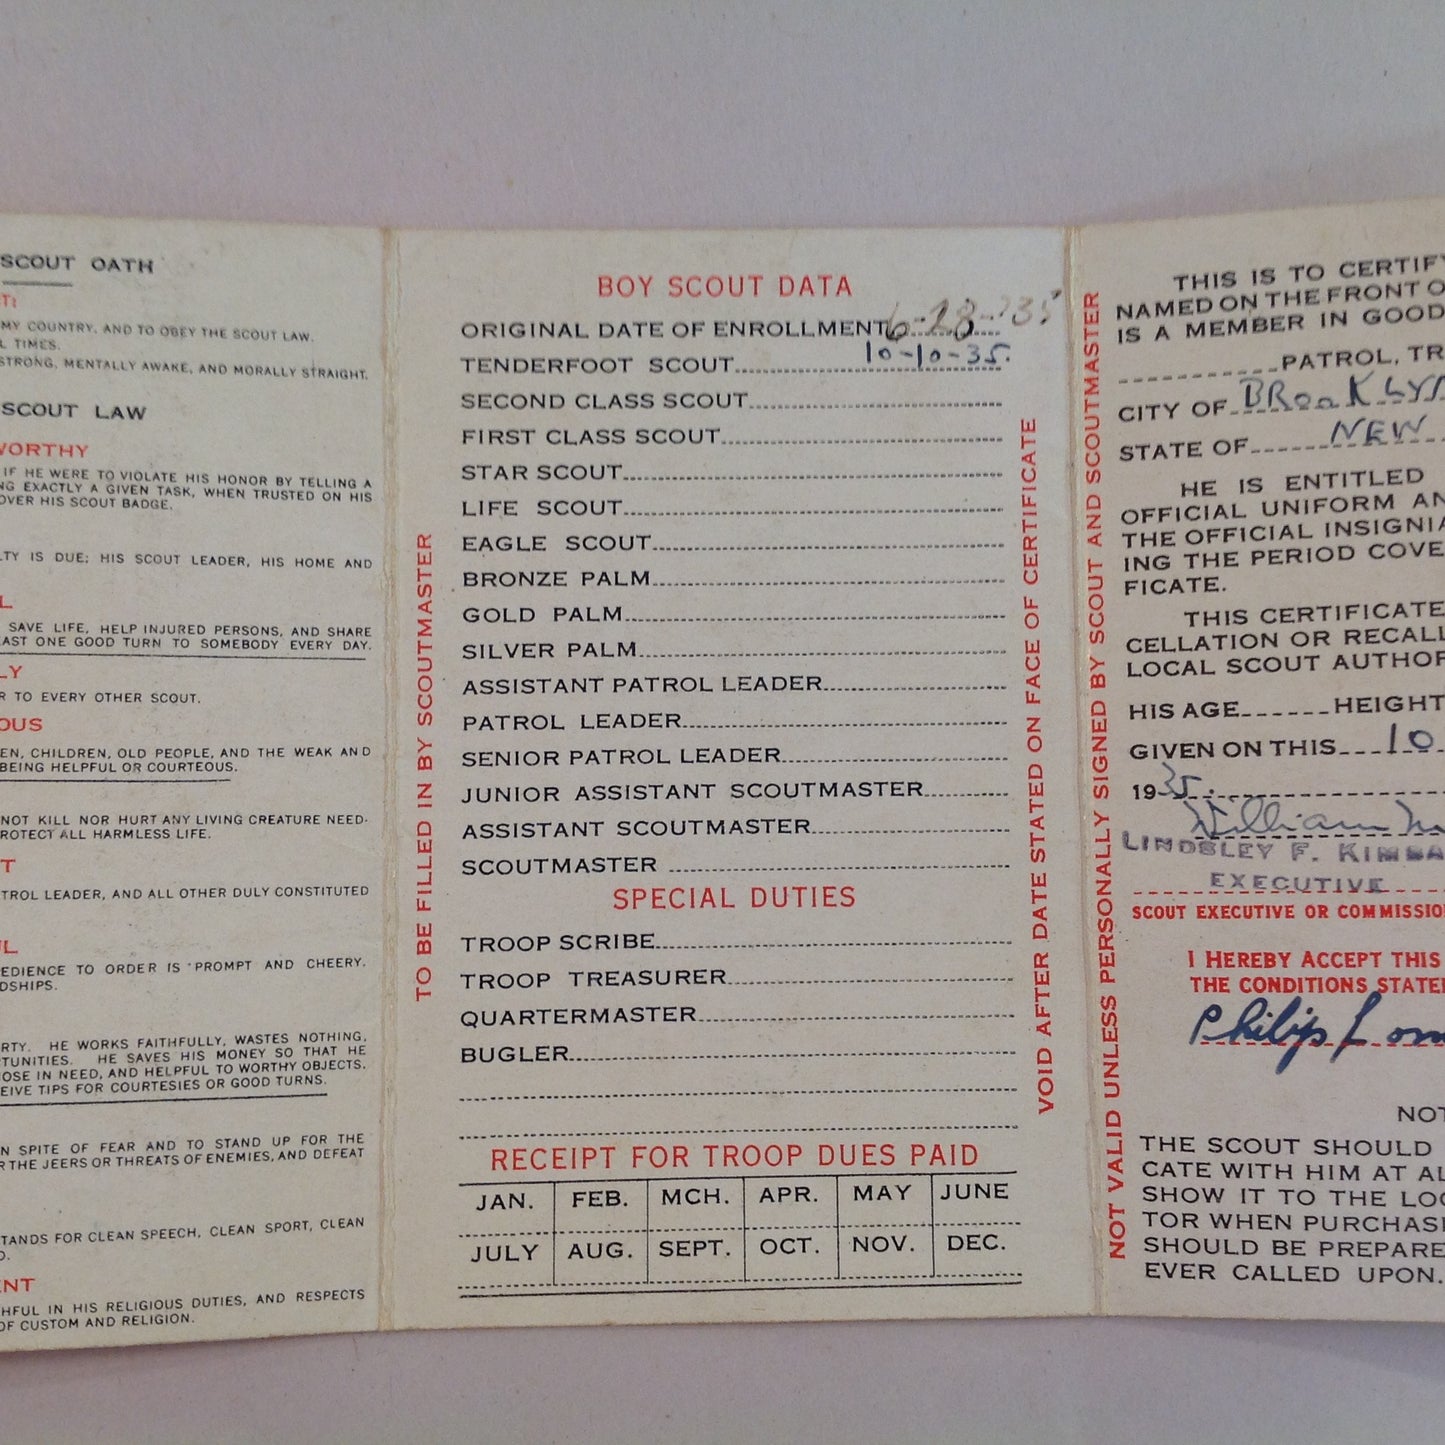 SCOUT OATH
MY COUNTRY, AND TO OBEY THE SCOUT LAW.
TIMES.
STRONG, MENTALLY AWAKE, AND MORALLY STRAIGHT.
SCOUT LAW
WORTHY
IF HE WERE TO VIOLATE HIS HONOR BY TELLING A
EXACTLY A GIVEN TASK, WHEN TRUSTED ON HIS
OVER HIS SCOUT BADGE.
LTY IS DUE; HIS SCOUT LEADER, HIS HOME AND
L
SAVE LIFE, HELP INJURED PERSONS, AND SHARE
AST ONE GOOD TURN TO SOMEBODY EVERY DAY.
LY
R TO EVERY OTHER SCOUT.
OUS
EN, CHILDREN, OLD PEOPLE, AND THE WEAK AND
BEING HELPFUL OR COURTEOUS.
NOT KILL NOR HURT ANY LIVING CREATURE NEED-
ROTECT ALL HARMLESS LIFE.
T
TROL LEADER, AND ALL OTHER DULY CONSTITUTED
UL
EDIENCE TO ORDER IS PROMPT AND CHEERY.
DSHIPS.
RTY. HE WORKS FAITHFULLY, WASTES NOTHING,
TUNITIES. HE SAVES HIS MONEY SO THAT HE
OSE IN NEED, AND HELPFUL TO WORTHY OBJECTS.
EIVE TIPS FOR COURTESIES OR GOOD TURNS.
N SPITE OF FEAR AND TO STAND UP FOR THE
R THE JEERS OR THREATS OF ENEMIES, AND DEFEAT
TANDS FOR CLEAN SPEECH, CLEAN SPORT, CLEAN
ENT
HFUL IN HIS RELIGIOUS DUTIES, AND RESPECTS
OF CUSTOM AND RELIGION.
TO BE FILLED IN BY SCOUTMASTER
BOY SCOUT DATA
ORIGINAL DATE OF ENROLLMENT 6-28-35
TENDERFOOT SCOUT 10-10-35.
SECOND CLASS SCOUT
FIRST CLASS SCOUT
STAR SCOUT
LIFE SCOUT
EAGLE SCOUT
BRONZE PALM
GOLD PALM
SILVER PALM
ASSISTANT PATROL LEADER
PATROL LEADER
SENIOR PATROL LEADER
JUNIOR ASSISTANT SCOUTMASTER
ASSISTANT SCOUTMASTER
SCOUTMASTER
SPECIAL DUTIES
TROOP SCRIBE
TROOP TREASURER
QUARTERMASTER
BUGLER
RECEIPT FOR TROOP DUES PAID
JAN. FEB. MCH. APR. MAY JUNE
JULY AUG. SEPT. OCT. NOV. DEC.
VOID AFTER DATE STATED ON FACE OF CERTIFICATE
NOT VALID UNLESS PERSONALLY SIGNED BY SCOUT AND SCOUTMASTER
THIS IS TO CERTIFY
NAMED ON THE FRONT O
IS A MEMBER IN GOOD
PATROL, TR
CITY OF BRooKLYN
STATE OF NEW
HE IS ENTITLED
OFFICIAL UNIFORM AN
THE OFFICIAL INSIGNIA
ING THE PERIOD COVE
FICATE.
THIS CERTIFICATE
CELLATION OR RECALL
LOCAL SCOUT AUTHOR
HIS AGE HEIGHT
GIVEN ON THIS 10
1935.
William
LINDSLEY F. KIMBA
EXECUTIVE
SCOUT EXECUTIVE OR COMMISSIO
I HEREBY ACCEPT THIS
THE CONDITIONS STATE
Philip
NOT
THE SCOUT SHOULD
CATE WITH HIM AT AL
SHOW IT TO THE LOC
TOR WHEN PURCHASI
SHOULD BE PREPARE
EVER CALLED UPON.